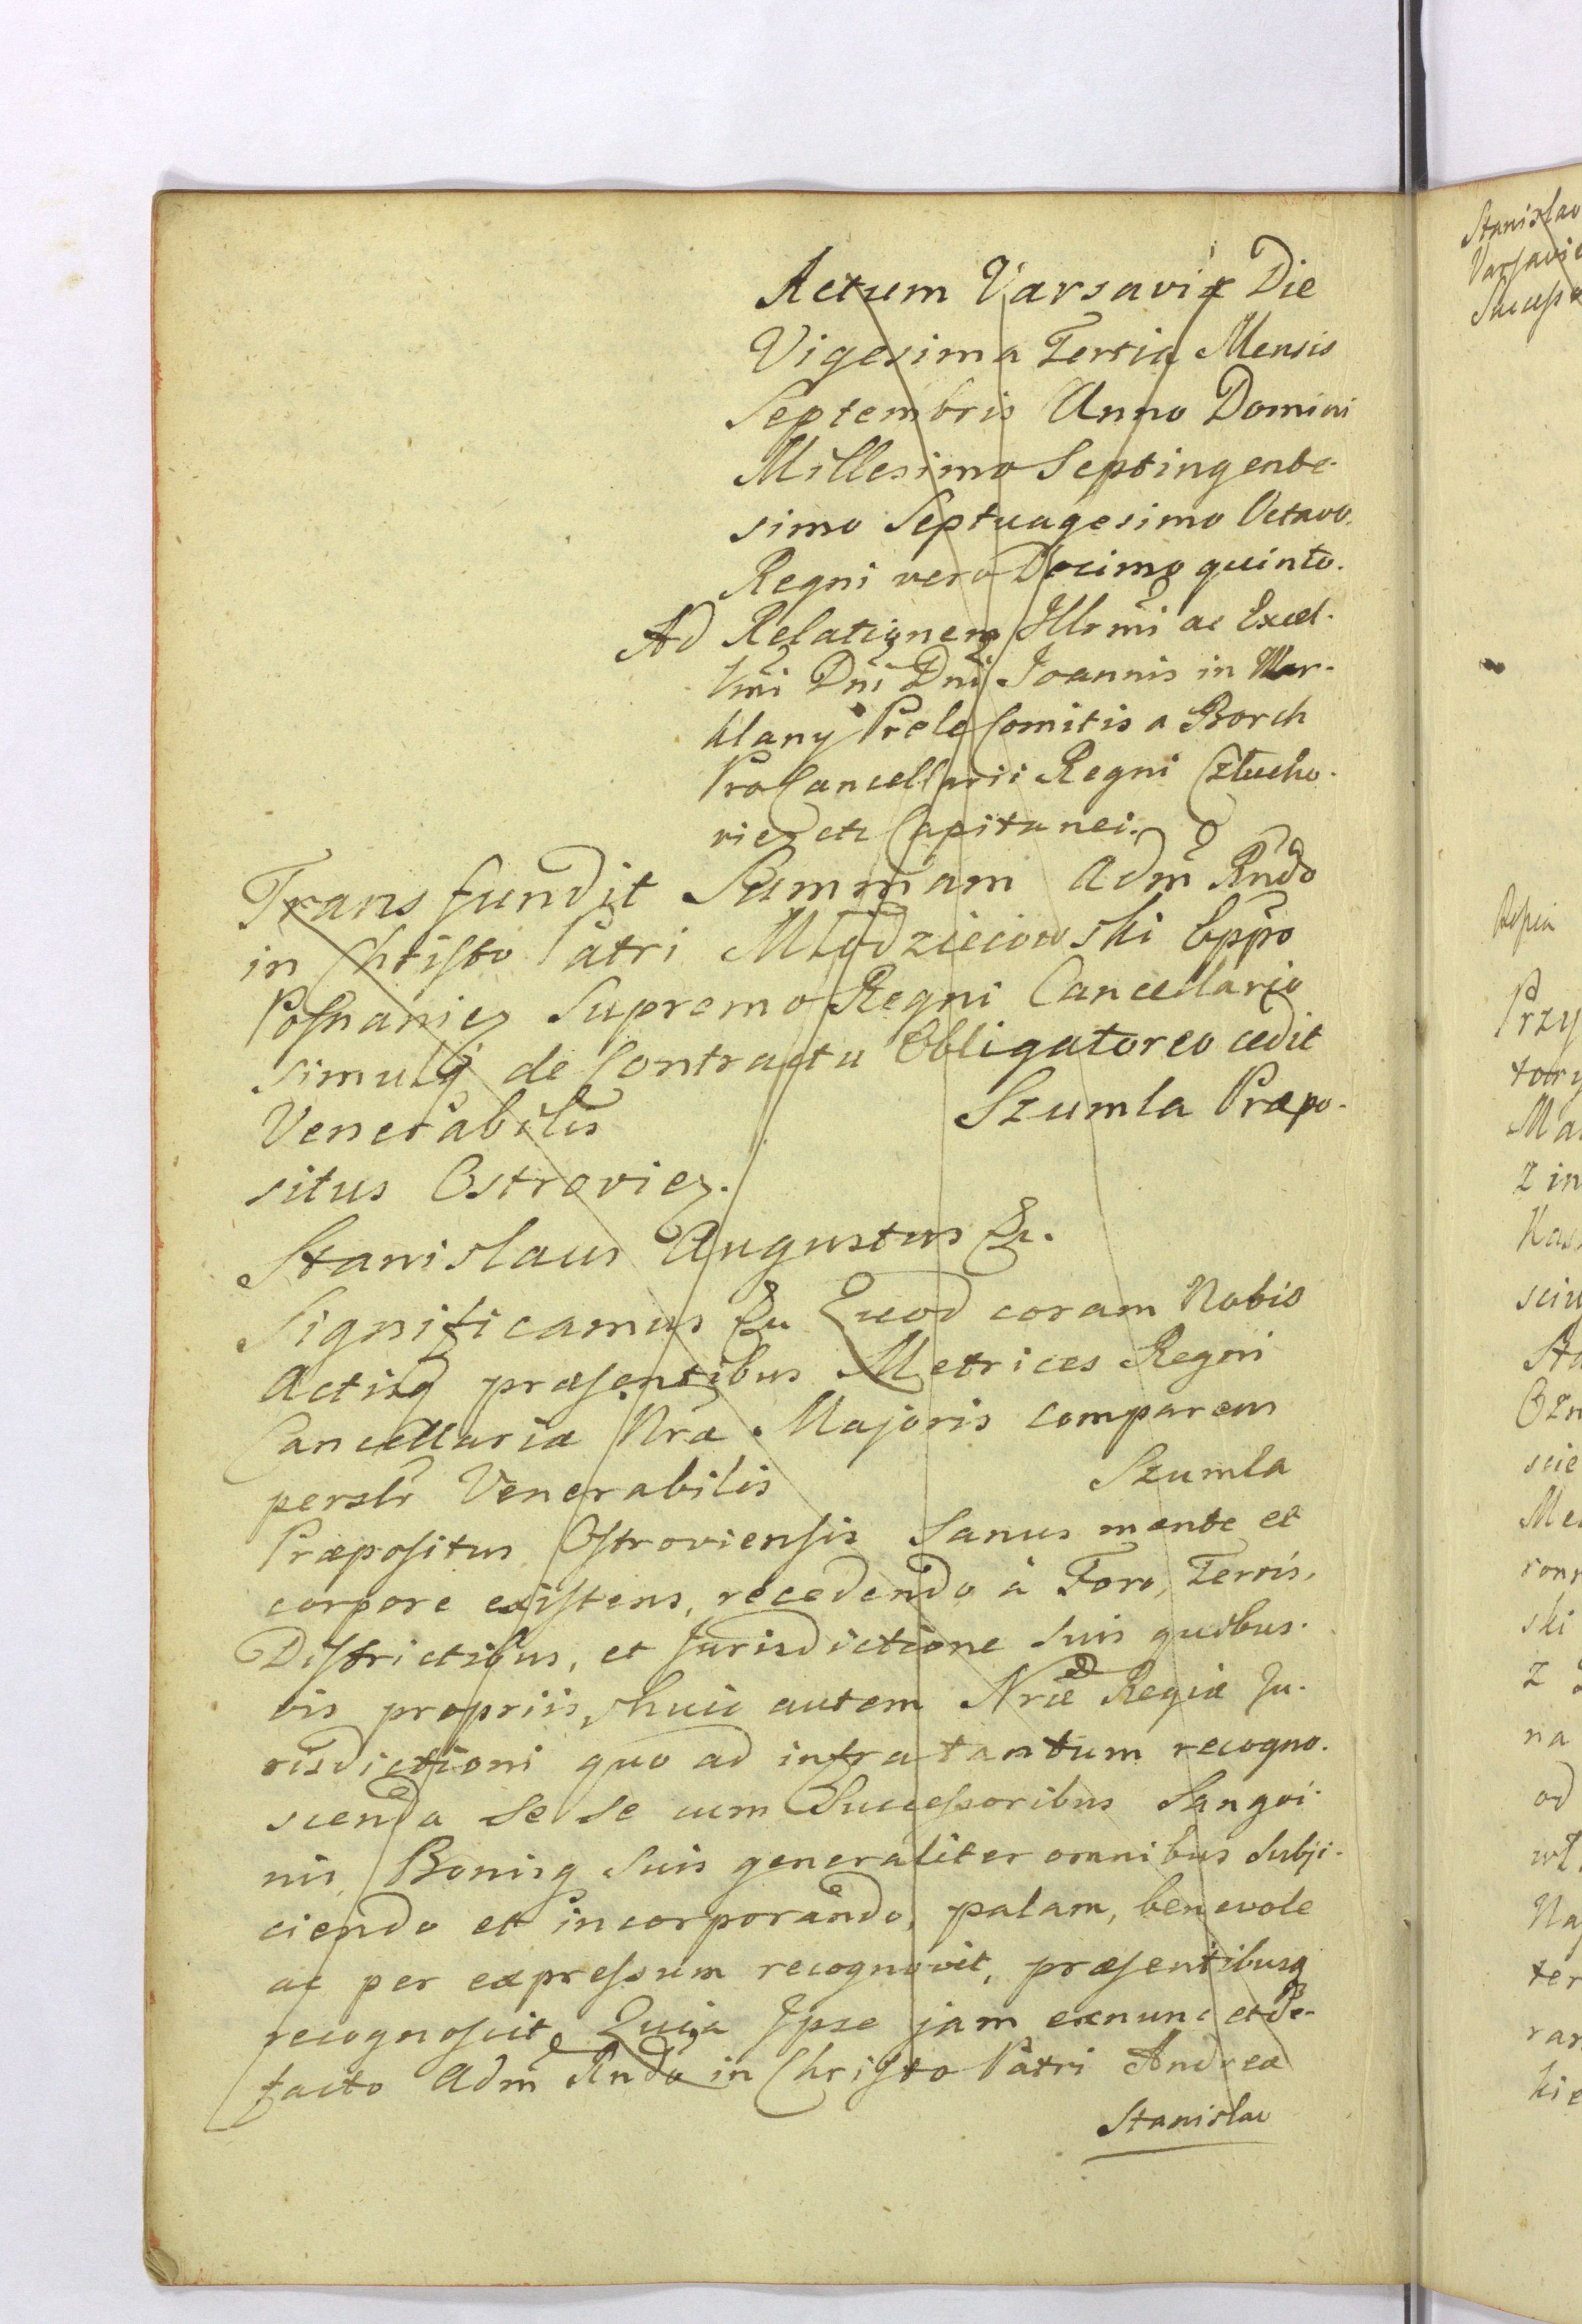 Actum Varsaviæ Die
Vigesima Tertia Mensis
Septembris Anno Domini
Millesimo Septingente-
simo Septuagesimo Octavo.
Regni vero Decimo quinto.
Ad Relationem Illrmi ac Excel-
lmi Dni Dni Joannis in War-
klany Prele Comitis a Borch
ProCancellarii Regni Człucho-
vien etc Capitanei.
Transfundit Summam Adm Rndo
in Christo Patri Młodzieiowski Eppo
Posnanien Supremo Regni Cancellario
simulq de Contractu Obligatoreo cedit
Venerabilis Szumla Præpo-
situs Ostrovien.
Stanislaus Augustus &c.
Significamus &c Quod coram Nobis
Actisq præsentibus Metrices Regni
Cancellariæ Nræ Majoris comparens
perslr Venerabilis Szumla
Præpositus Ostroviensis Sanus mente et
corpore existens, recedendo à Foro, Terris,
Districtibus, et Jurisdictione suis quibus-
vis propriis, huic autem Nræ Regiæ Ju-
risdictioni quo ad infra tantum recogno-
scenda se se cum Successoribus Sangvi-
nis, Bonisq suis generaliter omnibus subji-
ciendo et incorporando, palam, benevole
ac per expressum recognovit, præsentibusq
recognoscit, Quia Ipse jam exnunc et de-
facto Adm Rndo in Christo Patri Andreæ
Stanislao
Stanislao
Przy
na
od